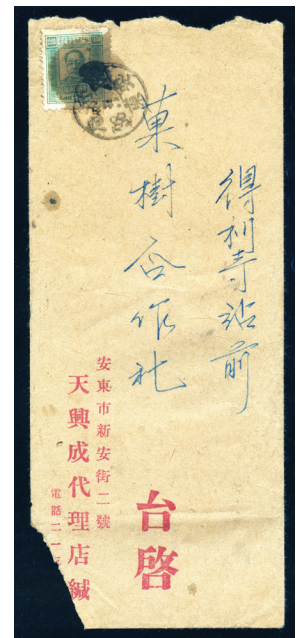 得利寺站前
菓樹合作社
台啓
安東市新安街二號
天興成代理店緘
電話二一